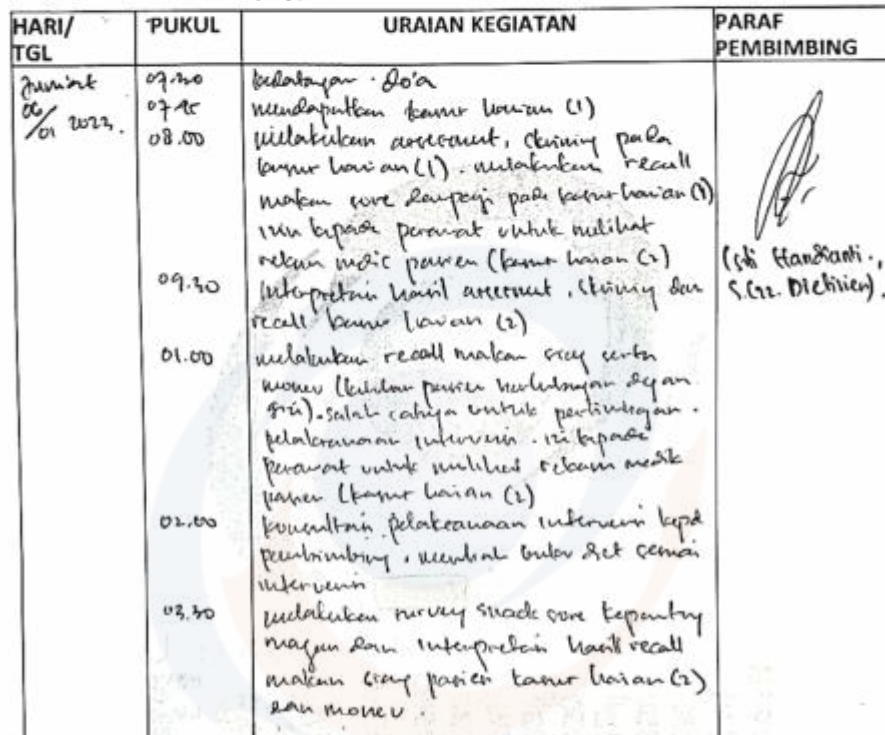 HARI/ TGL PUKUL URAIAN KEGIATAN PARAF PEMBIMBING
Jumiat 07.30 kedatangan. do'a
06/01 2023. 07.45 mendapatkan kasus harian (1)
08.00 melakukan assessment, skrining pada
kasus harian (1). melakukan recall
makan sore dan pagi pada kasus harian (1)
izin kepada perawat untuk melihat
rekam medic pasien (kasus harian (2)
09.30 Interpretasi hasil assessment, skrining dan
recall kasus harian (2)
01.00 melakukan recall makan siang serta
monev (keluhan pasien berhubungan dengan
gizi). salah satunya untuk pertimbangan.
pelaksanaan intervensi. izin kepada
perawat untuk melihat rekam medik
pasien (kasus harian (2)
02.00 konsultasi pelaksanaan intervensi kepd
pembimbing, diet sesuai
intervensi
03.30 melakukan survey snack sore kepantry
dan interpretasi hasil recall
makan siang pasien kasus harian (2)
dan monev.
(Siti Handianti.,
S.Gz. Dietisien).